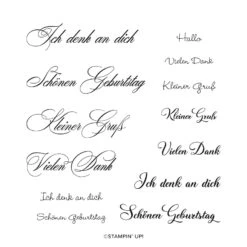 Ich denk an dich
Schönen Geburtstag
Kleiner Gruß
Vielen Dank
Ich denk an dich
Schönen Geburtstag
Hallo
Vielen Dank
Kleiner Gruß
Kleiner Gruß
Vielen Dank
Ich denk an dich
Schönen Geburtstag
©STAMPIN' UP!